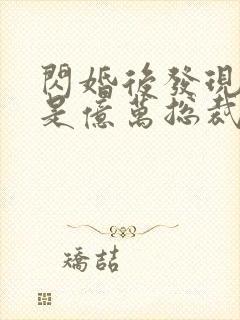 閃婚後發現
是億萬總裁
矯喆